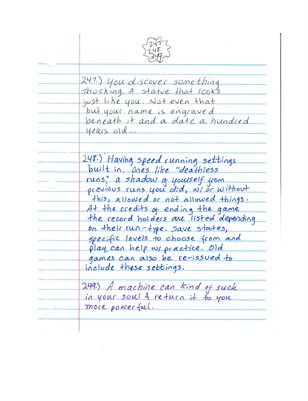 247
248
249
247.) You discover something
shocking. A statue that looks
just like you. Not even that
but your name is engraved
beneath it and a date a hundred
years old...
248.) Having speed running settings
built in. Ones like "deathless
runs," a shadow of yourself from
previous runs you did, w/ or without
this, allowed or not allowed things.
At the credits or ending the game
the record holders are listed depending
on their run-type. Save states,
specific levels to choose from and
play can help w/ practice. Old
games can also be re-issued to
include these settings.
249.) A machine can kind of suck
in your soul & return it to you
more powerful.